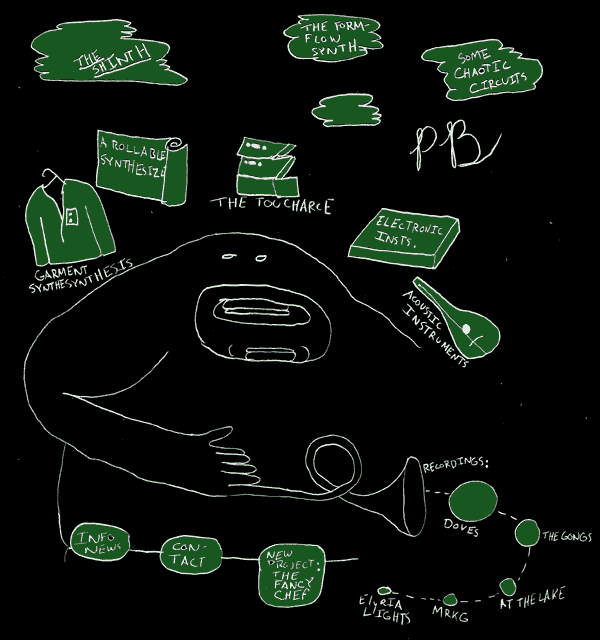 THE
SHINTH
THE FORM-
FLOW
SYNTH
SOME
CHAOTIC
CIRCUITS
PB
A ROLLABLE
SYNTHESIZ
THE TOUCHARCE
ELECTRONIC
INSTS.
GARMENT
SYNTHESYNTHESIS
ACOUSTIC
INSTRUMENTS
RECORDINGS:
DOVES
THE GONGS
AT THE LAKE
MRKG
ElyRIA
LIGHTS
INFO
NEWS
CON-
TACT
NEW
PROJECT:
THE
FANCY
CHEF